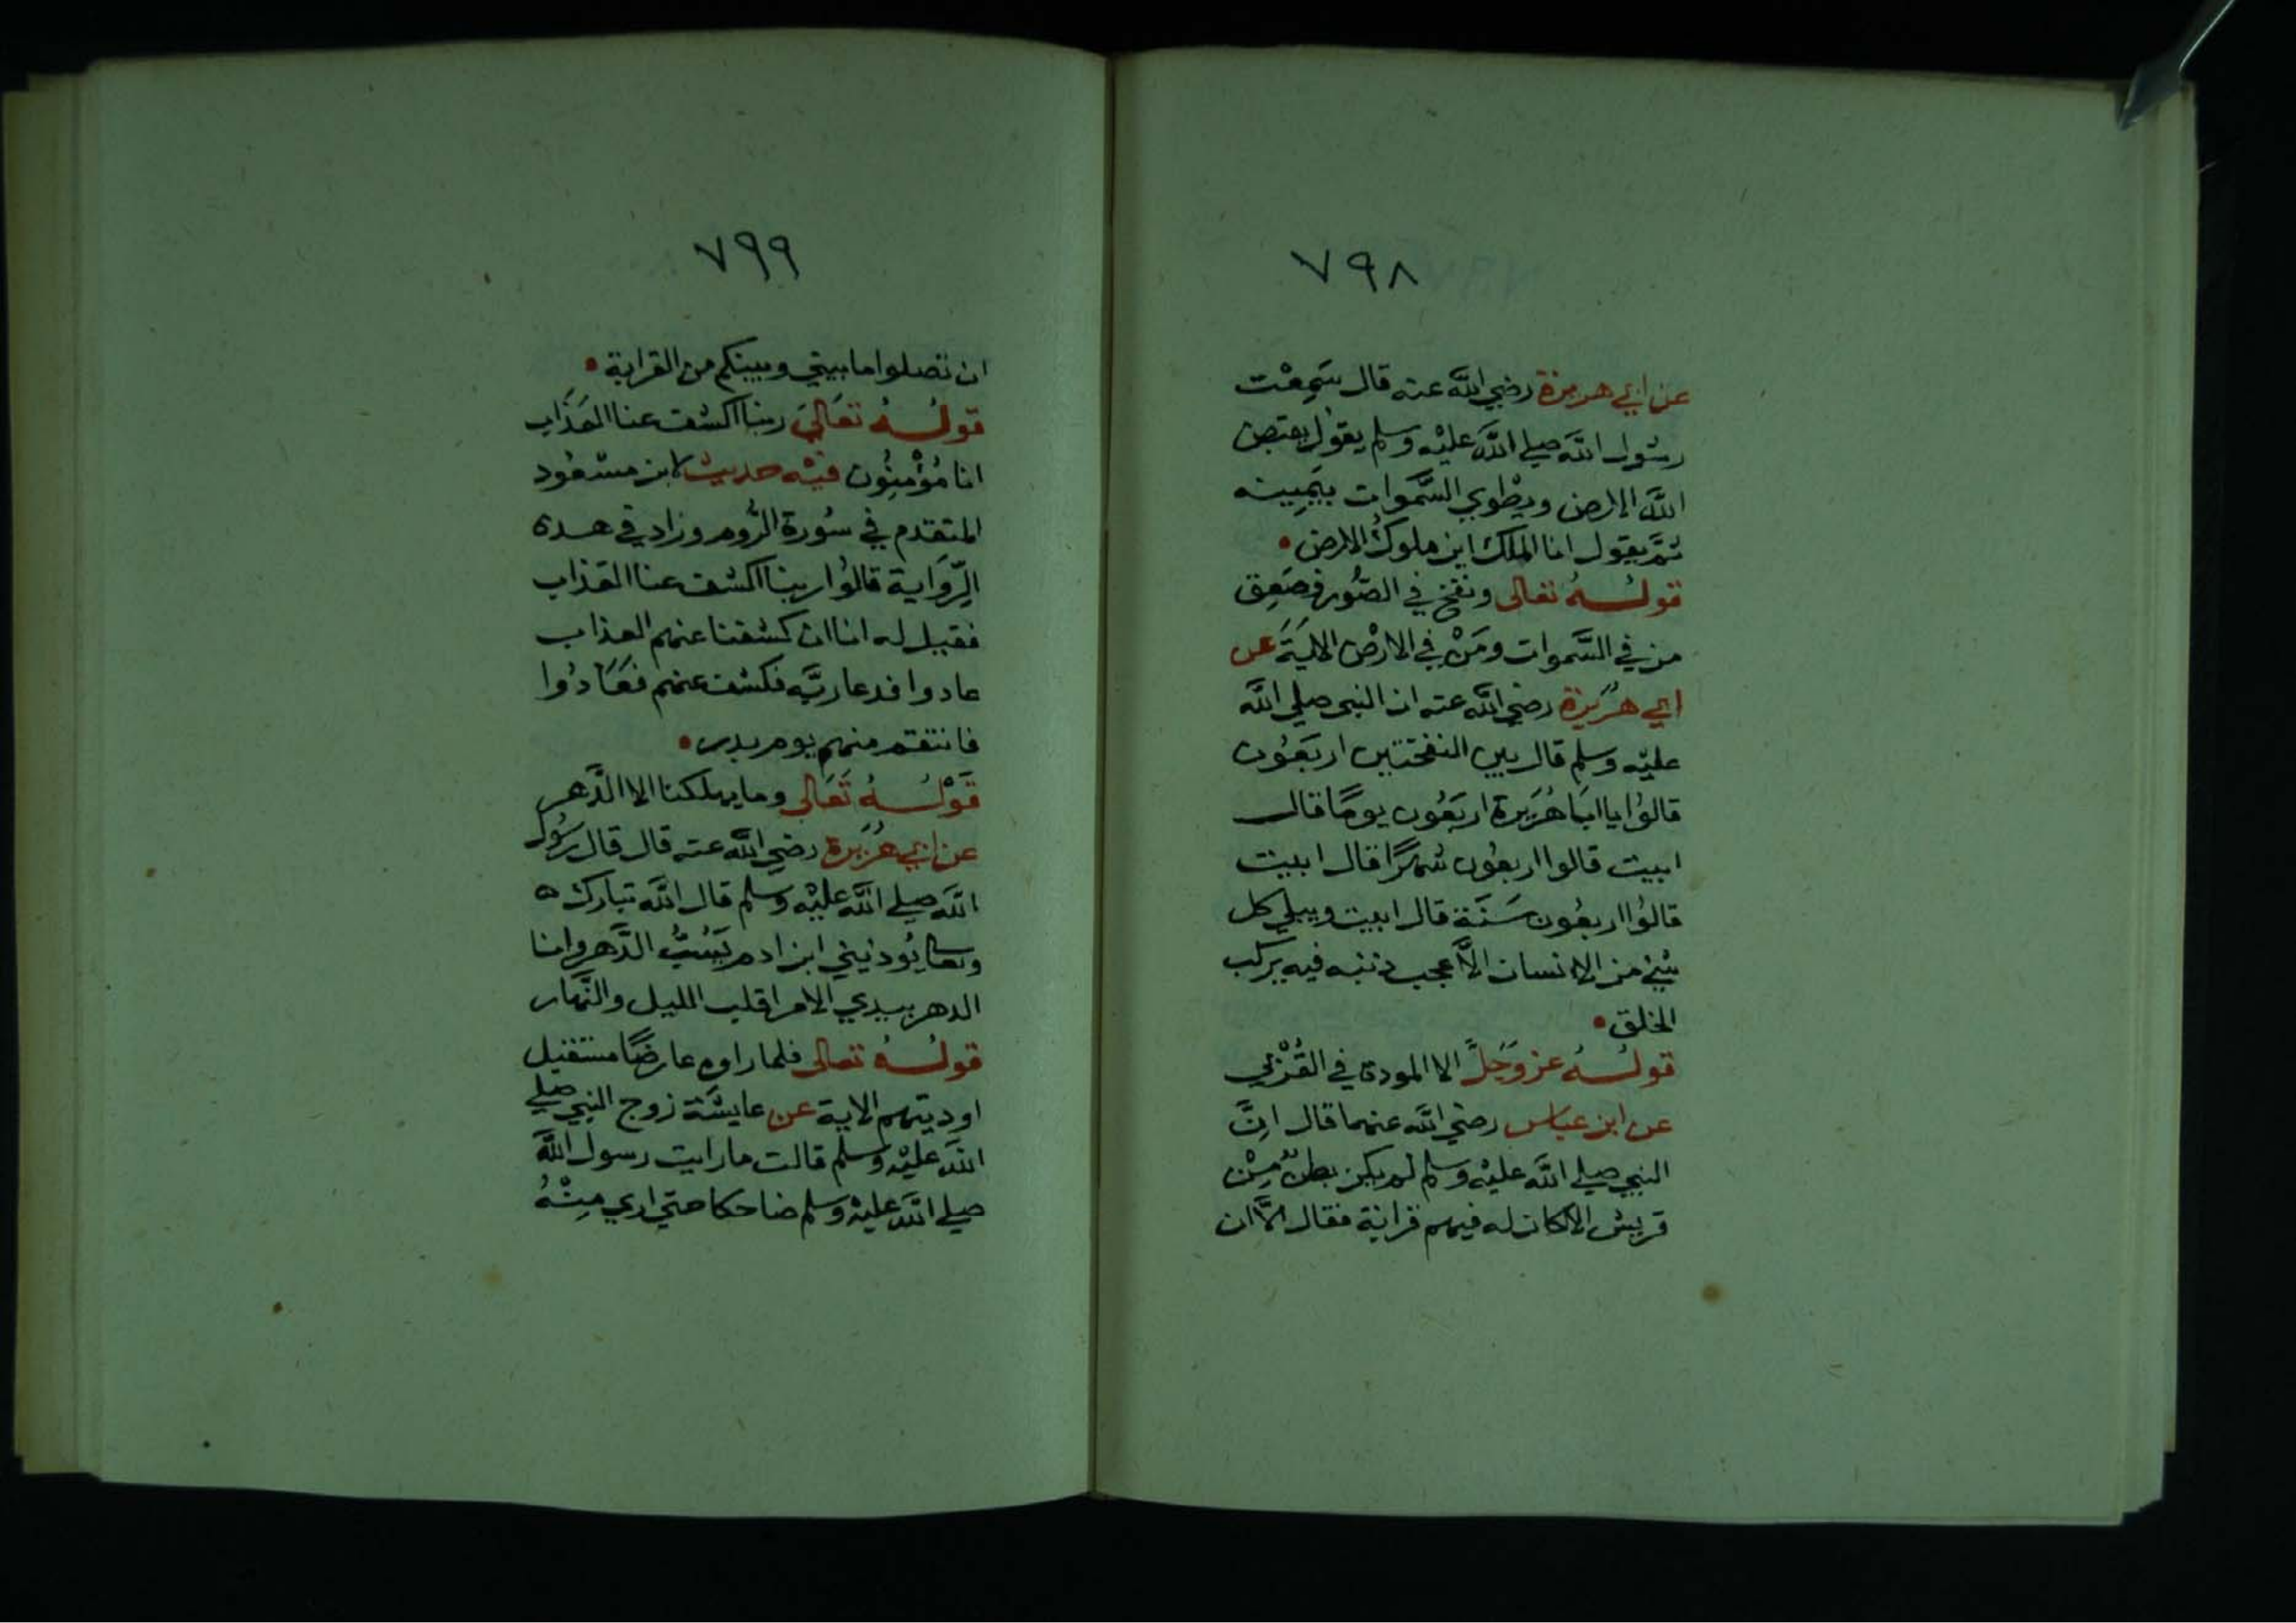 ٧٩٨
عن ابي هريرة رضي الله عنه قال سَمِعْت
رسُول الله صلي الله عليْه وسلم يقول يقبض
الله الارض ويطْوي السَّموات بيَمِينه
ثمّ يقول انا الملك اين ملوكُ الارض
قولُهُ تعالى ونفخ في الصُّور فصَعِق
من في السَّموات ومَنْ في الارْض الايَة عن
ابي هُرَيرة رضي الله عنه ان النبي صلي الله
عليْه وسلم قال بين النفختين اربَعُون
قالوُا يا ابَا هُرَيرة اربَعُون يومًا قال
ابيت قالوا اربعُون شهرًا قال ابيت
قالوُا اربعُون سَنَة قال ابيت ويبلي كل
شيْ من الانسان الَّا عجب ذنبه فيه يركب
الخلق
قولُهُ عز وَجَلّ الا المودة في القُرْبي
عن ابن عباس رضي الله عنهما قال اِنَّ
النبي صلي الله عليْه وسلم لم يكن بطنٌ مِنْ
قريش الا كان له فيهم قرابة فقال الَّا ان
٧٩٩
ان تصلوا ما بيني وبينكم من القرابة
قولُهُ تعَاليَ ربنا اكشف عنا العَذَاب
انا مُؤْمِنُون فيْه حديث لابن مسْعُود
المتقدم في سُورة الرُّوم وزاد في هذه
الرِّوَاية قالوُا ربنا اكشف عنا العَذاب
فقيل له انا ان كشفنا عنهم العذاب
عادوا فدعا ربَّه فكشف عنهم فعَادُوا
فانتقم منهم يوم بدر
قَوْلُهُ تَعَالى وما يهلكنا الا الدَّهر
عن ابي هُرَيرة رضي الله عنه قال قال رسُول
الله صلي الله عليْه وسلم قال الله تبارك
وتعا يُوذيني ابن ادم يَسُبُّ الدَّهر وانا
الدهر بيدي الامر اقلب الليل والنَّهار
قولُهُ تعالى فلما راوه عارضًا مستقبل
اوديتهم الاية عن عايشَة زوج النبي صلي
الله عليْه وسلم قالت ما رايت رسول الله
صلي الله عليْه وسلم ضاحكا حتي اري مِنْهُ